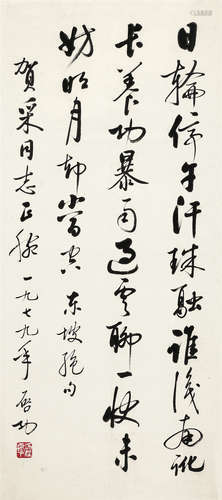 日輪停午汗珠融誰識南訛
長養功暴雨過雲聊一快未
妨明月却當空 東坡絕句
賀采同志正腕 一九七九年 啟功